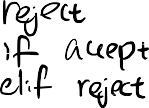 reject
if accept
elif reject